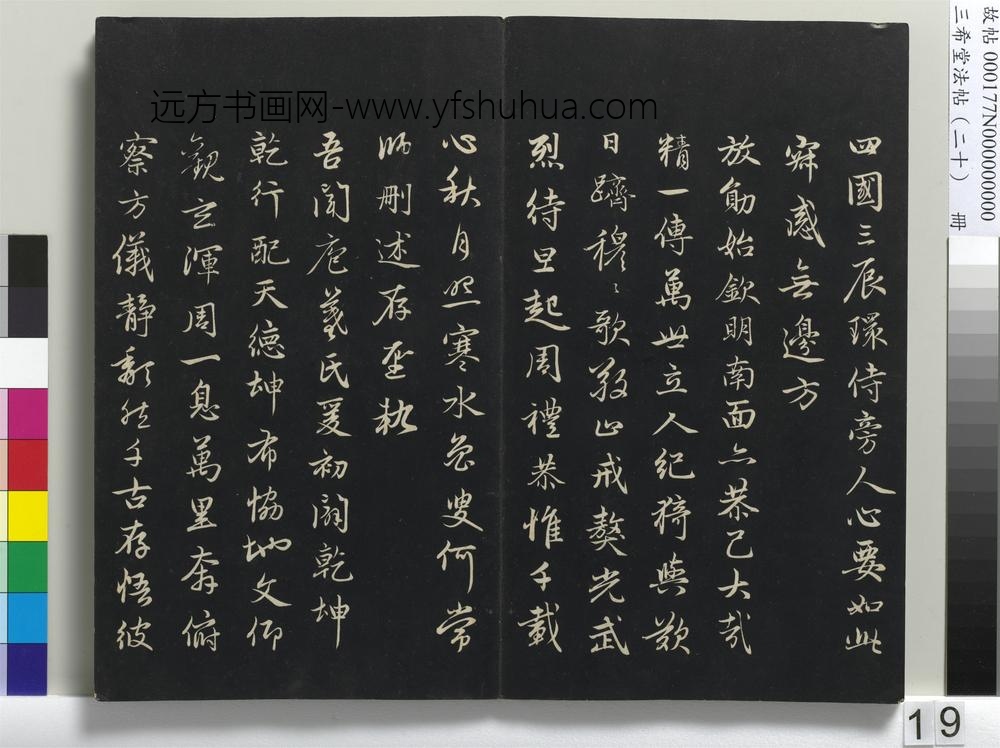 远方书画网-www.yfshuhua.com
故帖 000177N000000000
三希堂法帖（二十） 册
四國三辰環侍旁人心要如此
寂感無邊方
放勛始欽明南面亦恭己大哉
精一傳萬世立人紀猗與歎
日躋穆〻歌敬止戒獒光武
烈待旦起周禮恭惟千載
心秋月照寒水魯叟何常
師刪述存聖軌
吾聞庖羲氏爰初闢乾坤
乾行配天德坤布協地文仰
觀玄渾周一息萬里奔俯
察方儀靜頹然千古存悟彼
19